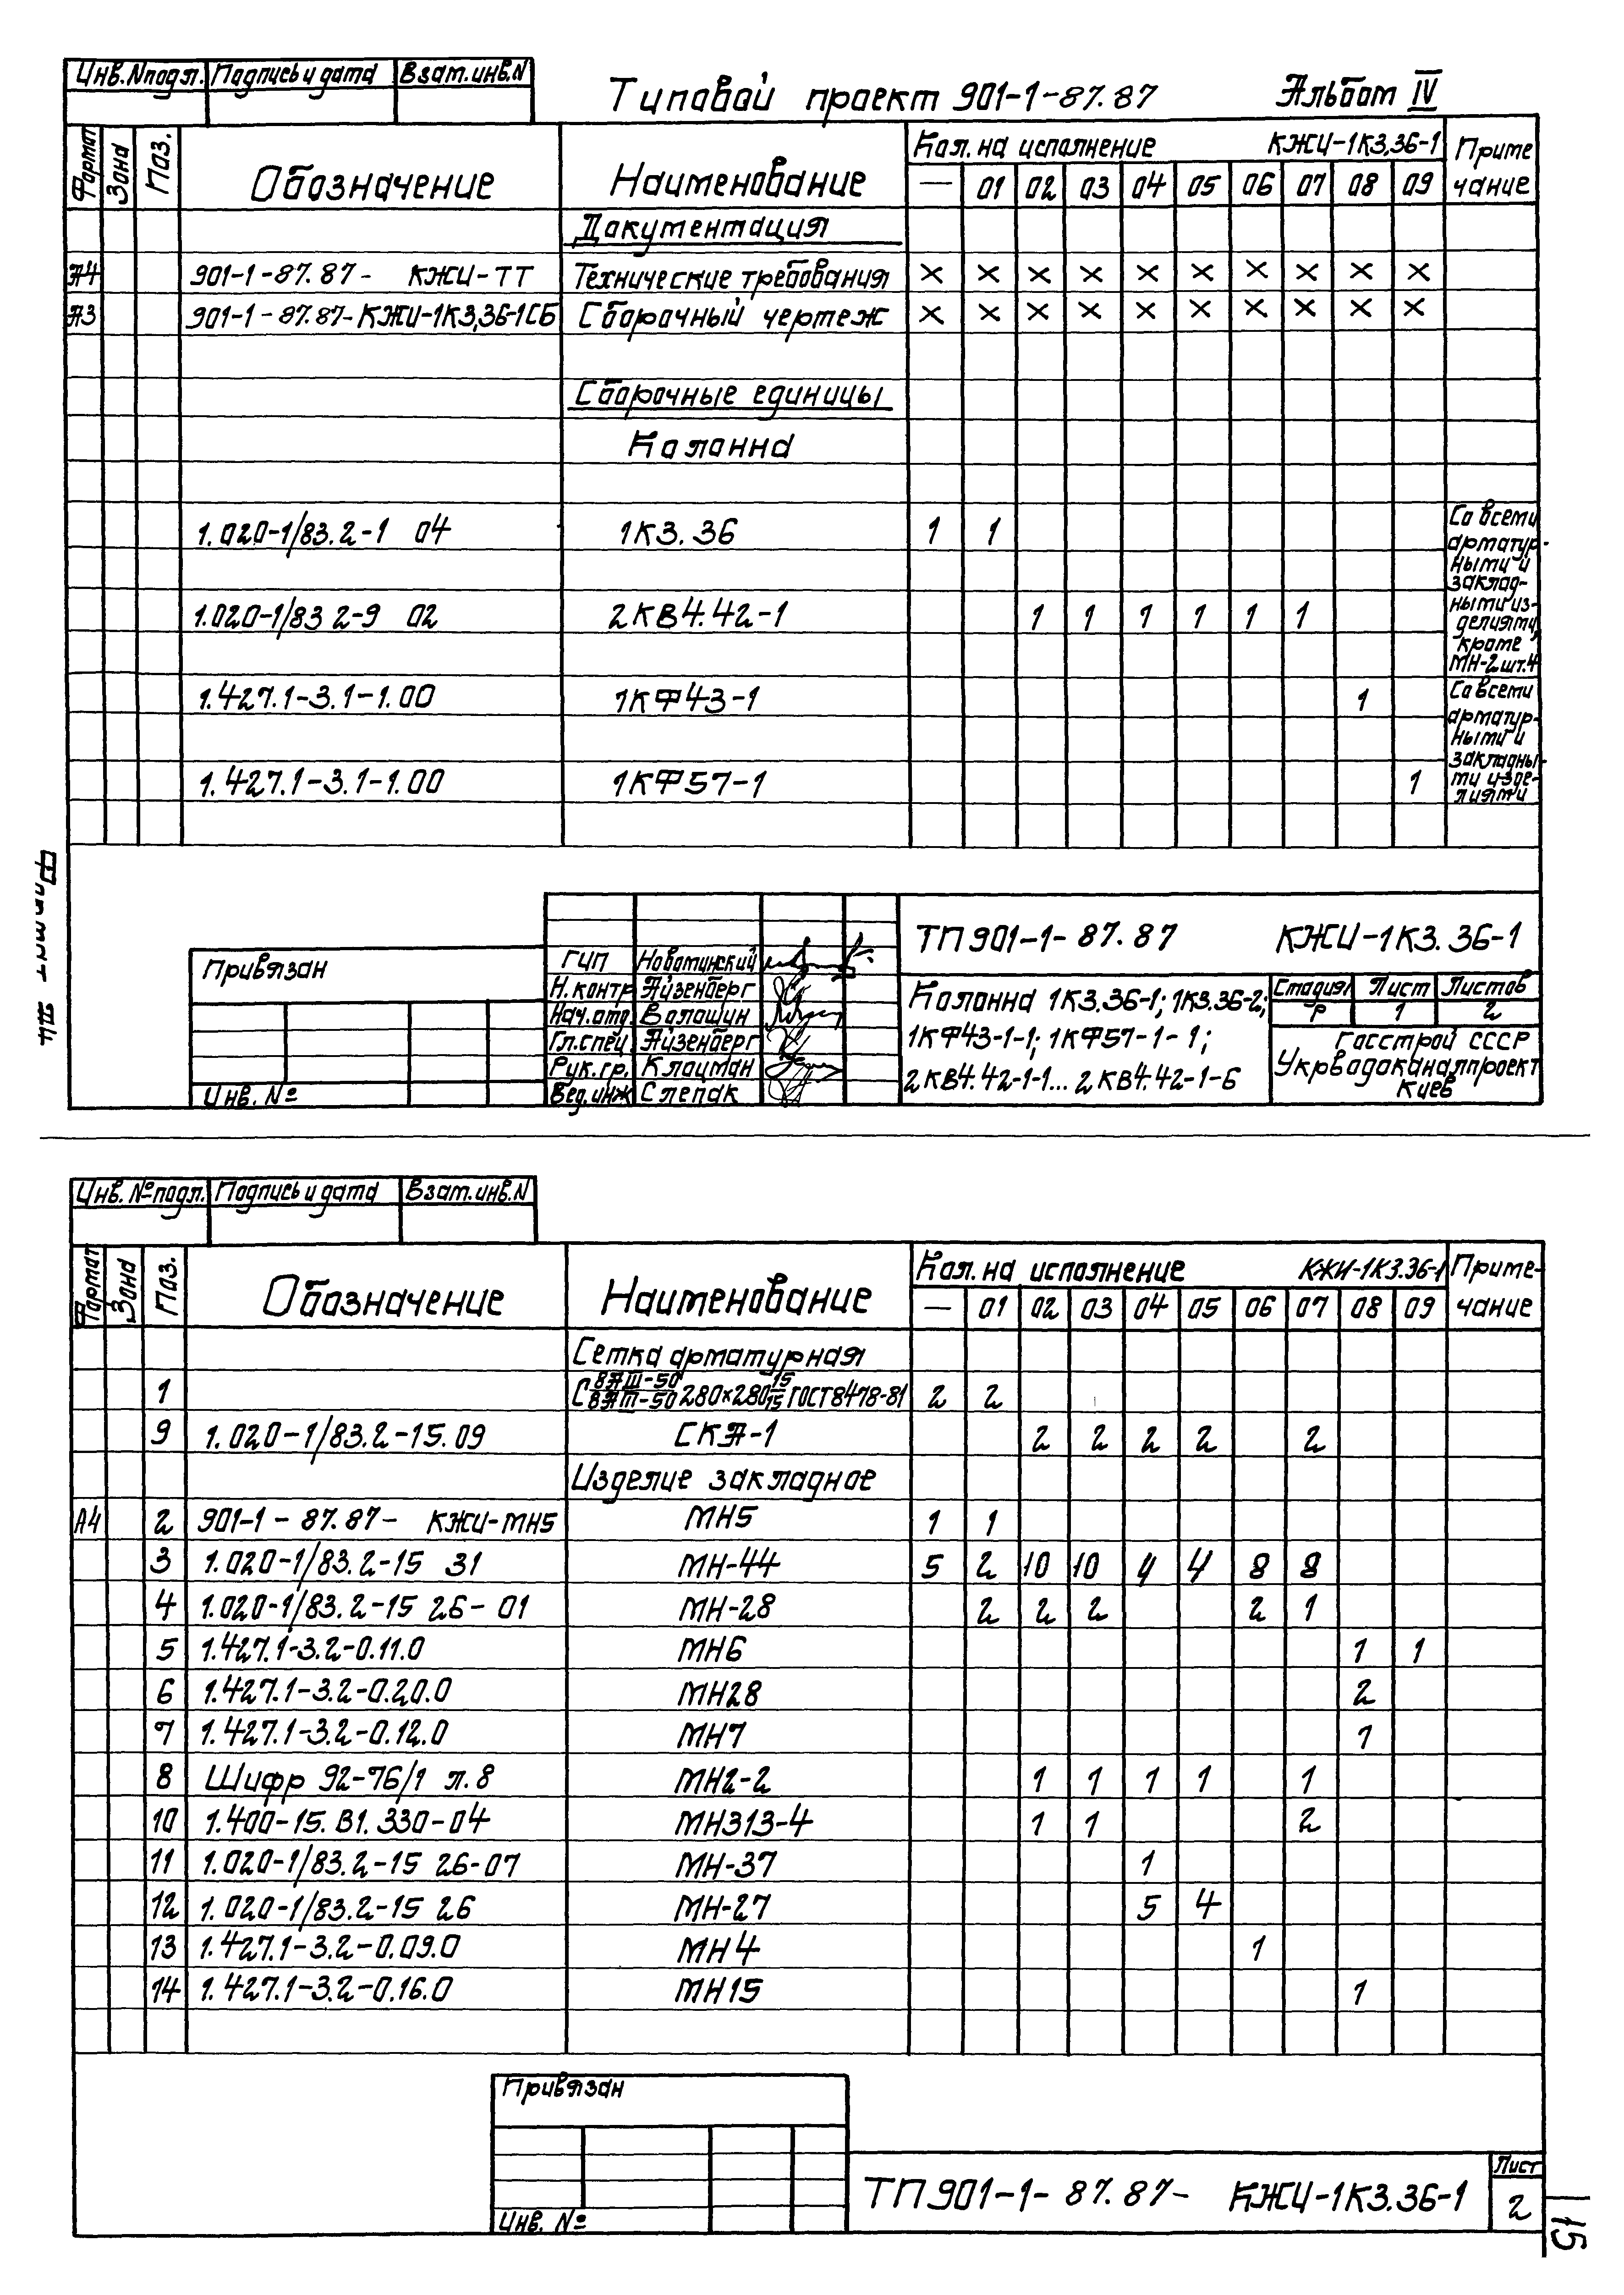 Инв.№подл. Подпись и дата Взам.инв.N
Типовой проект 901-1-87.87 Альбом IV
Формат Зона Поз. Обозначение Наименование Кол. на исполнение КЖИ-1К3,36-1 Приме
— 01 02 03 04 05 06 07 08 09 чание
Документация
А4 901-1-87.87- КЖИ-ТТ Технические требования × × × × × × × × × ×
А3 901-1-87.87-КЖИ-1К3,36-1СБ Сборочный чертеж × × × × × × × × × ×
Сборочные единицы
Колонна
1.020-1/83.2-1 04 1К3.36 1 1
1.020-1/83 2-9 02 2КВ4.42-1 1 1 1 1 1 1
Со всеми
арматур-
ными и
заклад-
ными из-
делиями,
кроме
МН-2шт.4
1.427.1-3.1-1.00 1КФ43-1 1
1.427.1-3.1-1.00 1КФ57-1 1
Со всеми
арматур-
ными и
закладны-
ми изде-
лиями
Формат А4
Привязан
Инв. №
ГИП Новоминский
Н.контр Айзенберг
Нач.отд. Волошин
Гл.спец. Айзенберг
Рук.гр. Клоцман
Вед.инж Слепак
ТП901-1-87.87 КЖИ-1К3.36-1
Колонна 1К3.36-1; 1К3.36-2;
1КФ43-1-1; 1КФ57-1-1;
2КВ4.42-1-1... 2КВ4.42-1-6
Стадия Лист Листов
Р 1 2
Госстрой СССР
Укрводоканалпроект
Киев
Инв. №подл. Подпись и дата Взам.инв.N
Формат Зона Поз. Обозначение Наименование Кол. на исполнение КЖИ-1К3.36-1 Приме-
— 01 02 03 04 05 06 07 08 09 чание
Сетка арматурная
1 С 8АIII-50/8АIII-50 280×280 15/15 ГОСТ8478-81 2 2
9 1.020-1/83.2-15.09 СКА-1 2 2 2 2 2
Изделие закладное
А4 2 901-1-87.87- КЖИ-МН5 МН5 1 1
3 1.020-1/83.2-15 31 МН-44 5 2 10 10 4 4 8 8
4 1.020-1/83.2-15 26-01 МН-28 2 2 2 2 1
5 1.427.1-3.2-0.11.0 МН6 1 1
6 1.427.1-3.2-0.20.0 МН28 2
7 1.427.1-3.2-0.12.0 МН7 1
8 Шифр 92-76/1 л.8 МН2-2 1 1 1 1 1
10 1.400-15.В1.330-04 МН313-4 1 1 2
11 1.020-1/83.2-15 26-07 МН-37 1
12 1.020-1/83.2-15 26 МН-27 5 4
13 1.427.1-3.2-0.09.0 МН4 1
14 1.427.1-3.2-0.16.0 МН15 1
Привязан
Инв. №
ТП901-1-87.87- КЖИ-1К3.36-1
Лист
2
15